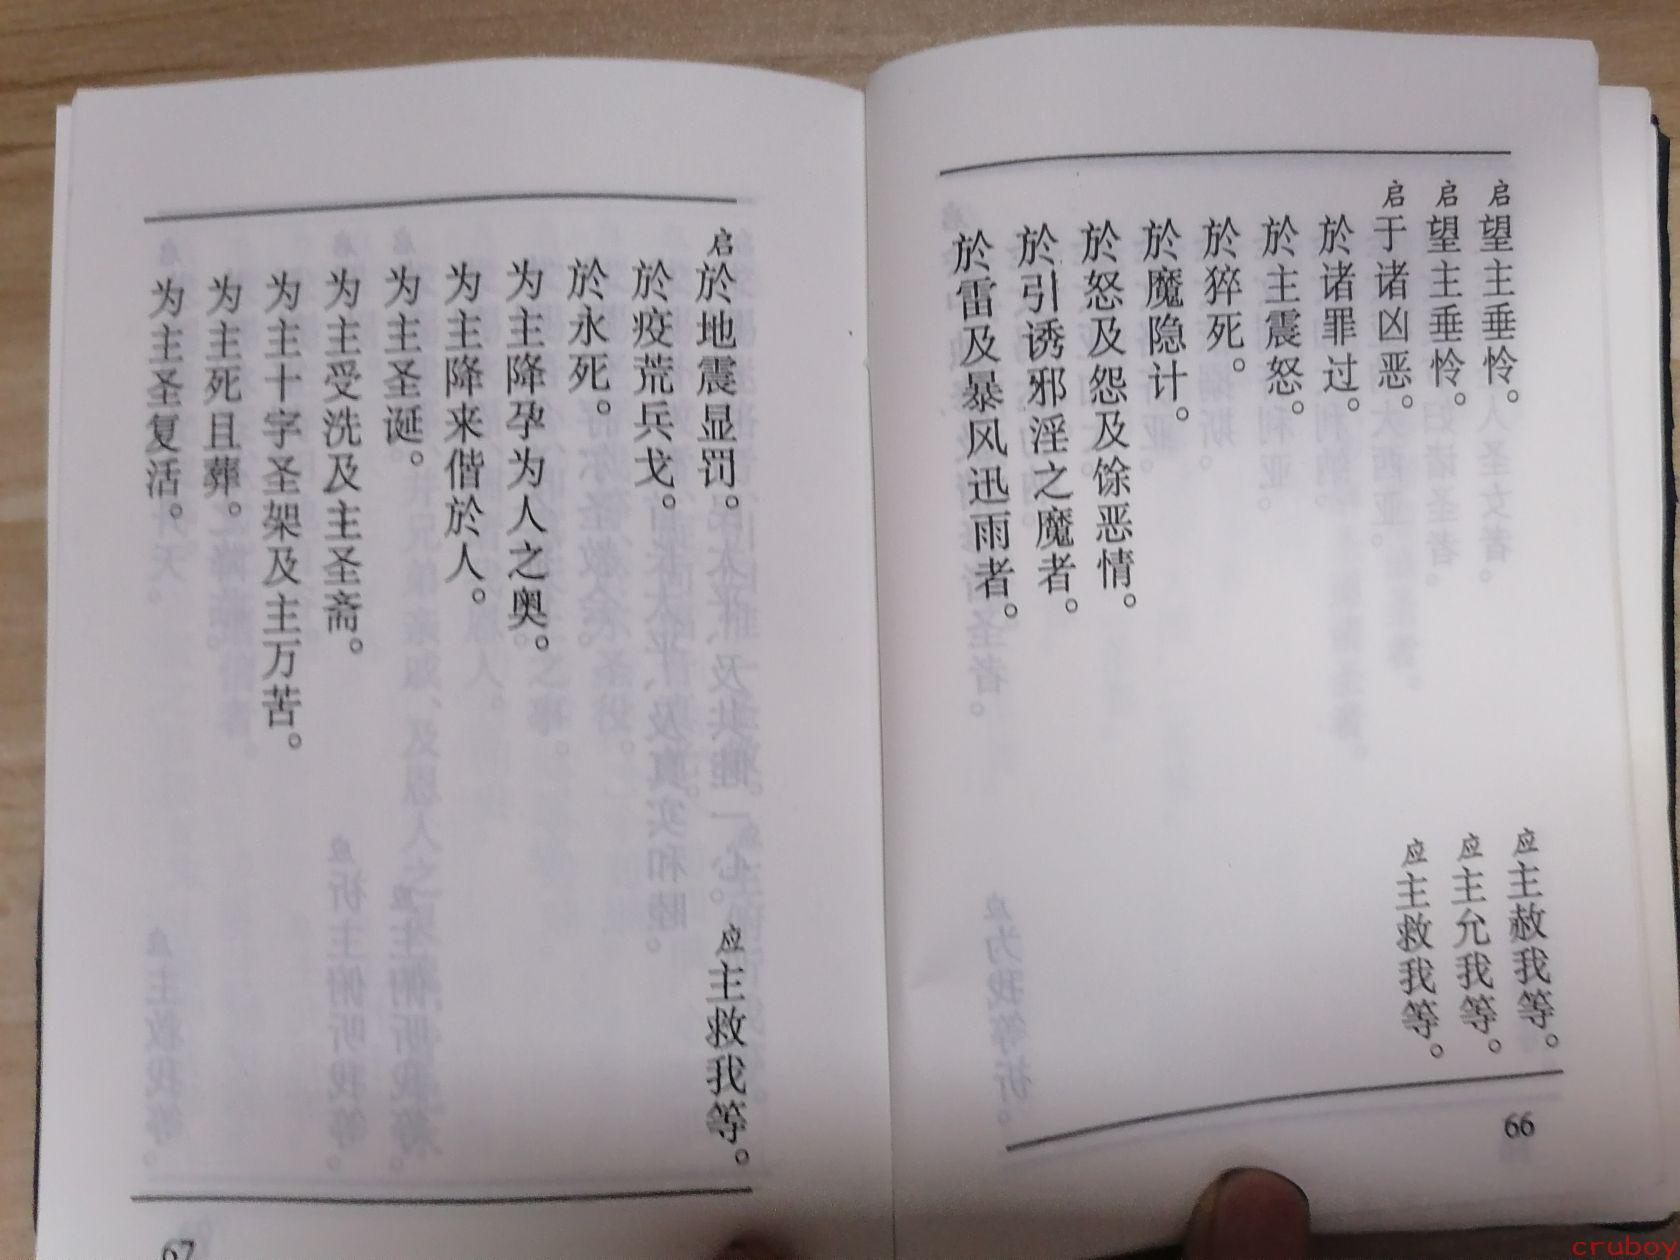 启望主垂怜。
应主赦我等。
启望主垂怜。
应主允我等。
启于诸凶恶。
应主救我等。
於诸罪过。
於主震怒。
於猝死。
於魔隐计。
於怒及怨及馀恶情。
於引诱邪淫之魔者。
於雷及暴风迅雨者。
66
启於地震显罚。
应主救我等。
於疫荒兵戈。
於永死。
为主降孕为人之奥。
为主降来偕於人。
为主圣诞。
为主受洗及主圣斋。
为主十字圣架及主万苦。
为主死且葬。
为主圣复活。
67
cruboy